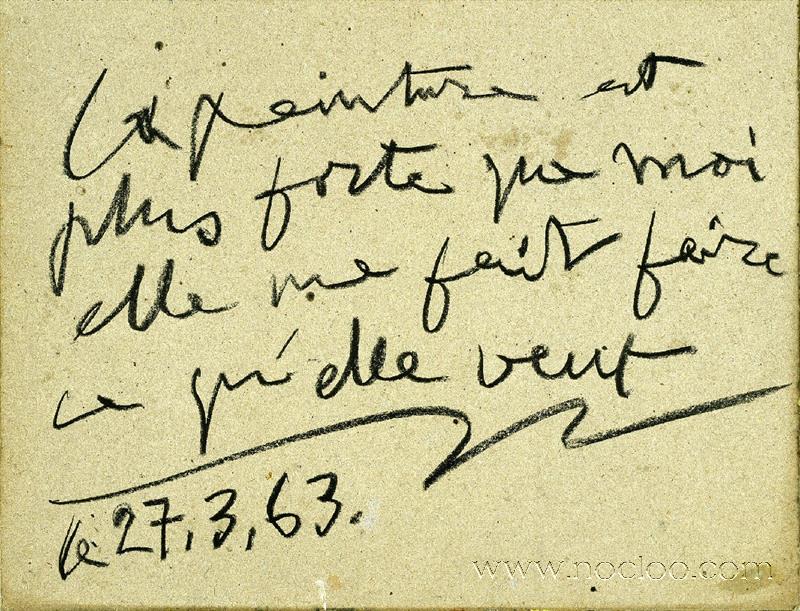 La peinture est
plus forte que moi
elle me fait faire
ce qu'elle veut
le 27.3.63.
www.nocloo.com